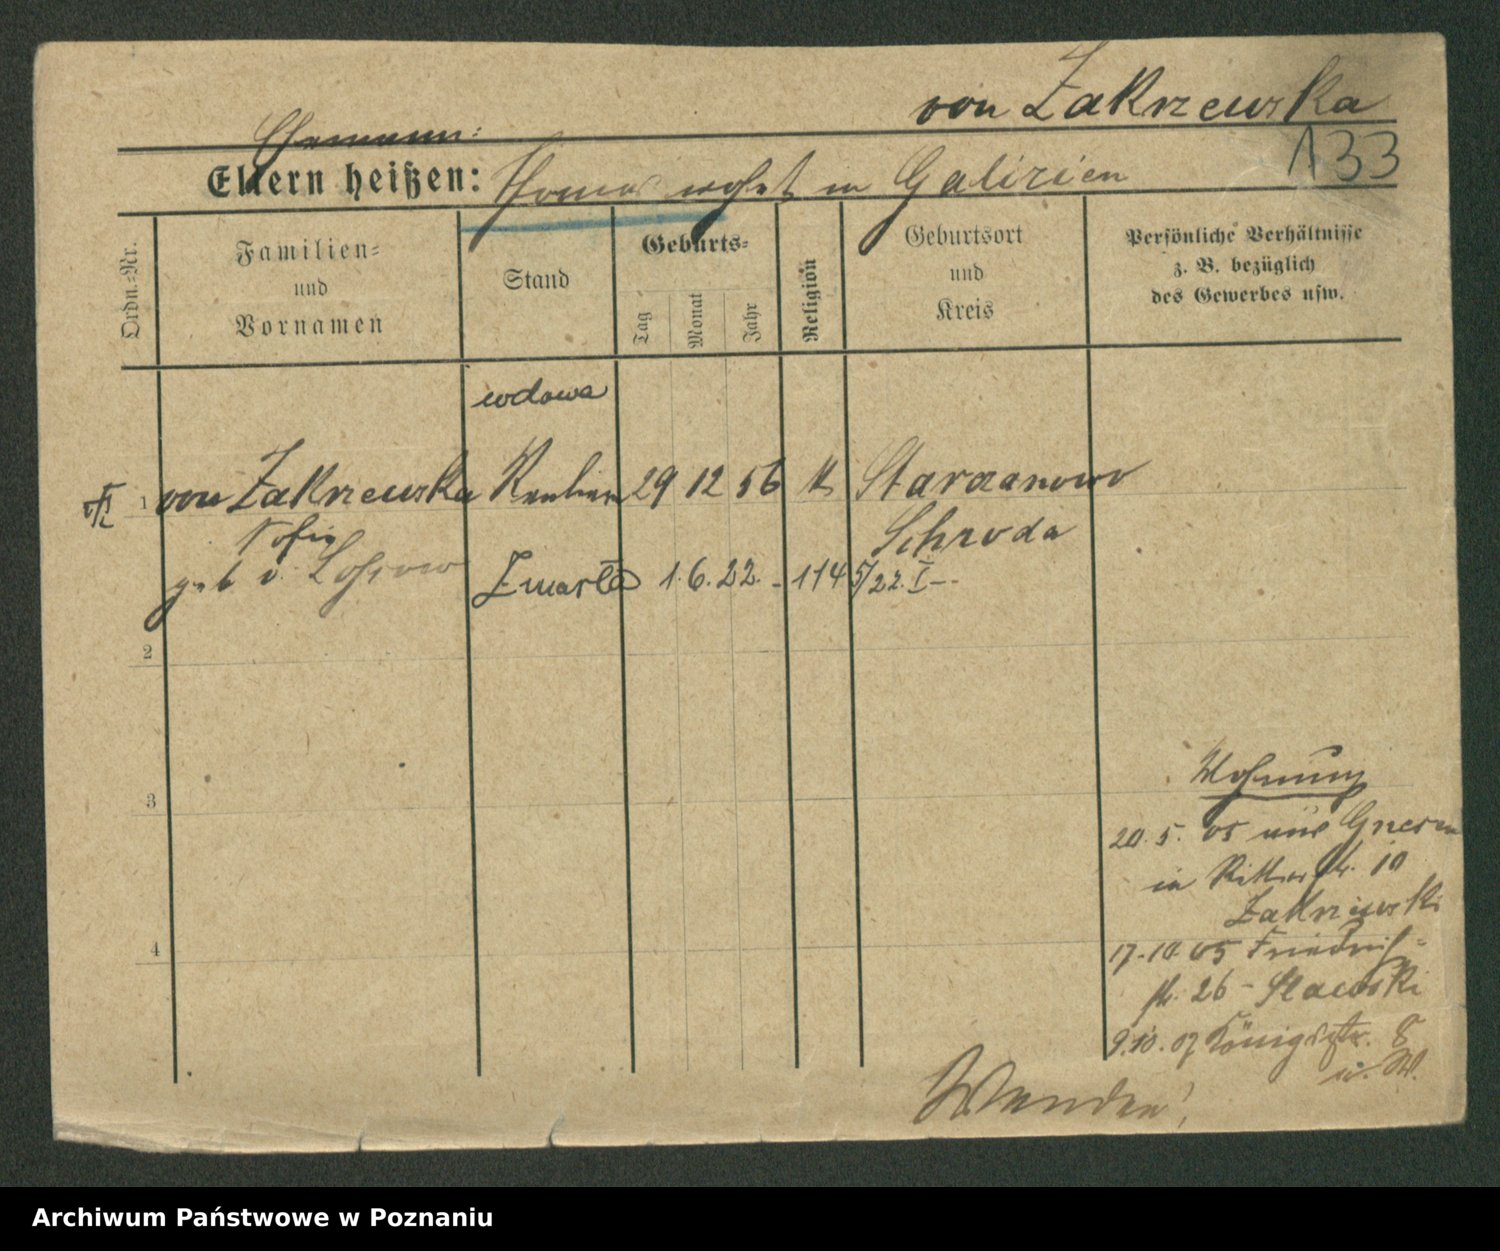 von Zakrzewska
133
Ehemann:
Eltern heißen: Thomas wohnt in Galizien
Ordn.-Nr.
Familien-
und
Vornamen
Stand
Geburts-
Tag
Monat
Jahr
Religion
Geburtsort
und
Kreis
Persönliche Verhältnisse
z. B. bezüglich
des Gewerbes usw.
wdowa
1 von Zakrzewska 29 12 56 k Starczanowo
Sofie Schroda
geb v.
Zmarła 1.6.22. - 1145/22. I--
2
3
4
Wohnung
20. 5. 05 aus Gnesen
in Ritterstr. 10
Zakrzewski
17.10.05 Friedrich-
str. 26 -
9.10.07 Königstr. 8
Wenden!
Archiwum Państwowe w Poznaniu